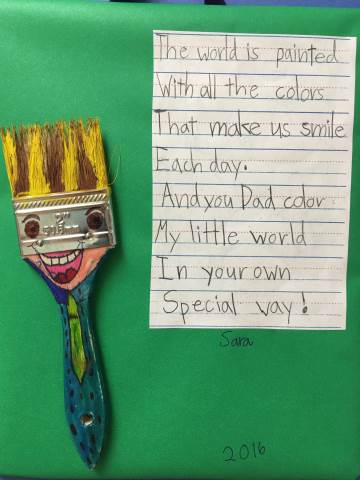 The world is painted
With all the colors
That make us smile
Each day.
And you Dad color
My little world
In your own
Special way!
Sara
2016
2"